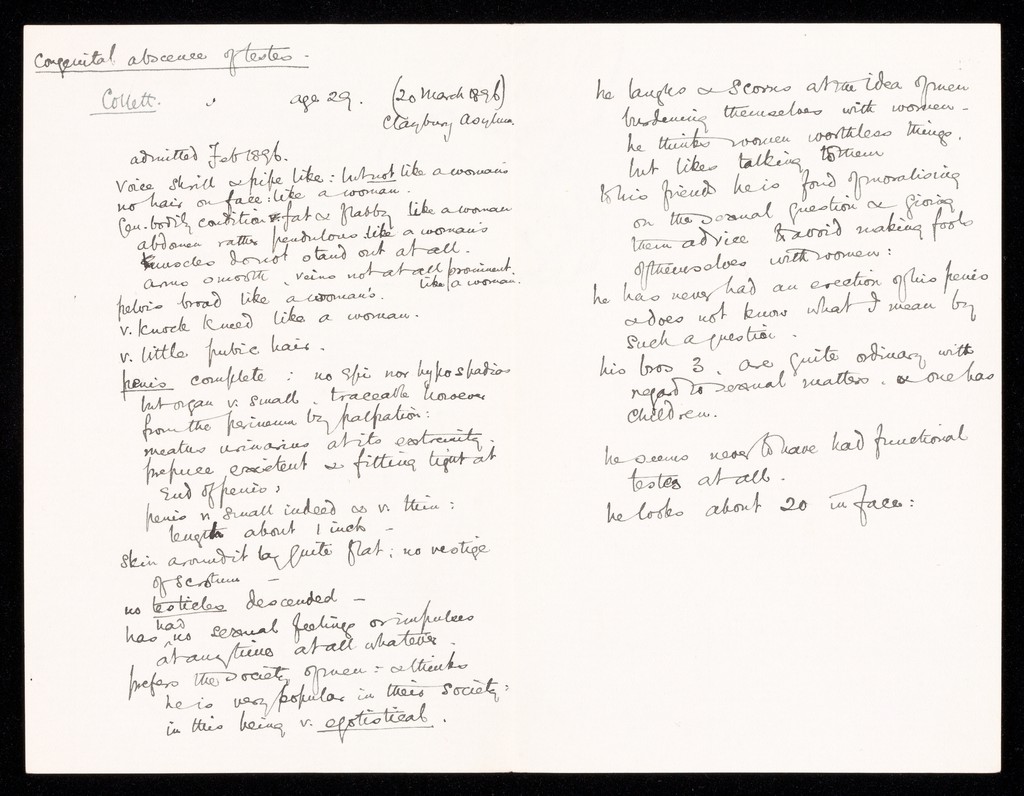 Congenital absence of testes.
Collett. age 29. (20 March 1896)
Claybury Asylum.
admitted Feb 1896.
Voice shrill & pipe like: but not like a woman's
no hair on face: like a woman.
Gen. bodily condition fat & flabby like a woman
abdomen rather pendulous like a woman's
muscles do not stand out at all.
arms smooth, veins not at all prominent.
like a woman.
pelvis broad like a woman's.
v. knock kneed like a woman.
v. little pubic hair.
penis complete: no epi nor hypospadias
but organ v. small, traceable however
from the perineum by palpation:
meatus urinarius at its extremity.
prepuce existent & fitting tight at
end of penis:
penis v. small indeed & v. thin:
length about 1 inch —
skin around it lay quite flat; no vestige
of scrotum —
no testicles descended —
has had no sexual feelings or impulses
at any time at all whatever.
prefers the society of men: & thinks
he is very popular in their society:
in this being v. egotistical.
he laughs & scorns at the idea of men
burdening themselves with women —
he thinks women worthless things,
but likes talking to them
to his friends he is fond of moralising
on the sexual question & giving
them advice to avoid making fools
of themselves with women:
he has never had an erection of his penis
& does not know what I mean by
such a question.
his bros 3, are quite ordinary with
regard to sexual matters, & one has
children.
he seems never to have had functional
testes at all.
he looks about 20 in face: